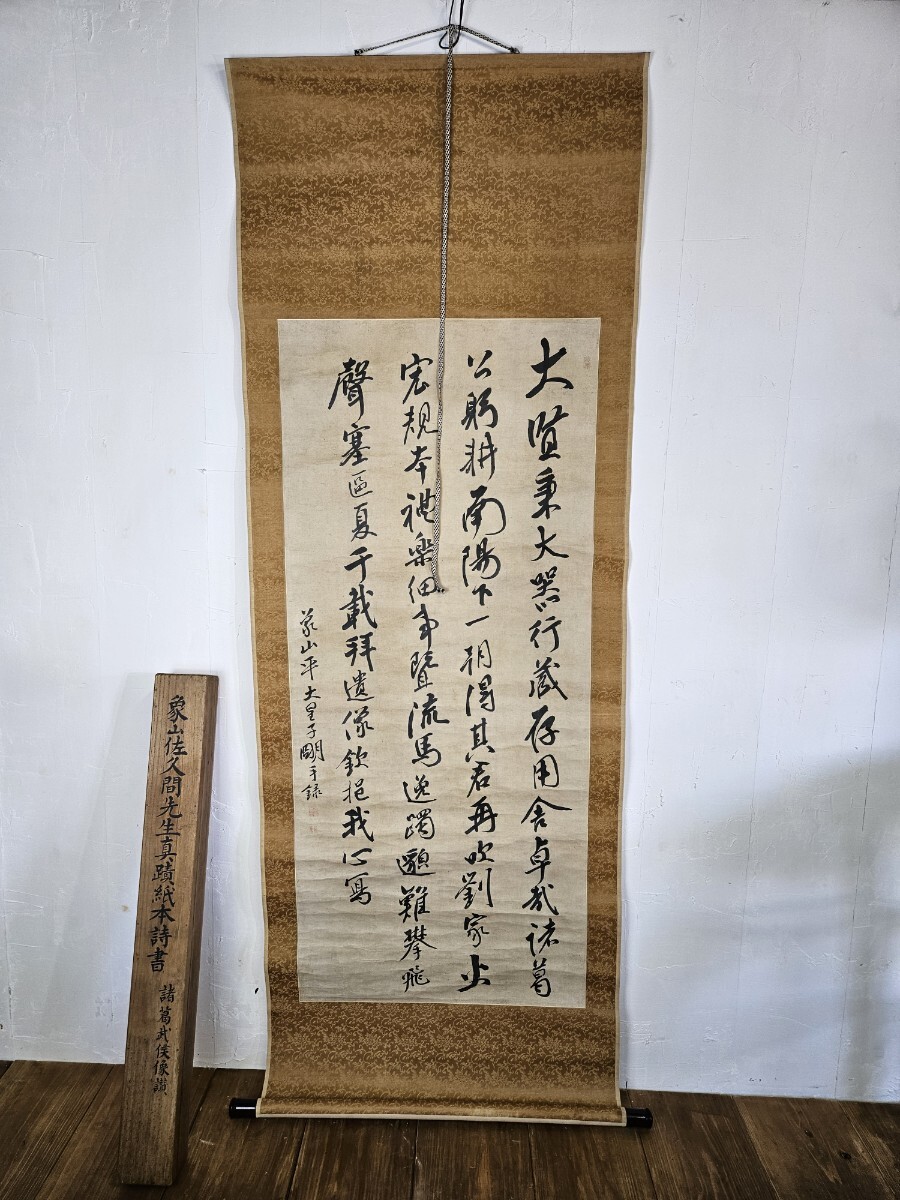 大賢秉大器行藏存用舍卓哉諸葛
公躬耕南陽下一朝得其君再吹劉家火
宏規本禮樂細事暨流馬逸躅邈難攀飛
聲塞區夏千載拜遺像欽挹我心寫
象山平大星子明手録
象山佐久間先生真蹟紙本詩書
諸葛武侯像讃